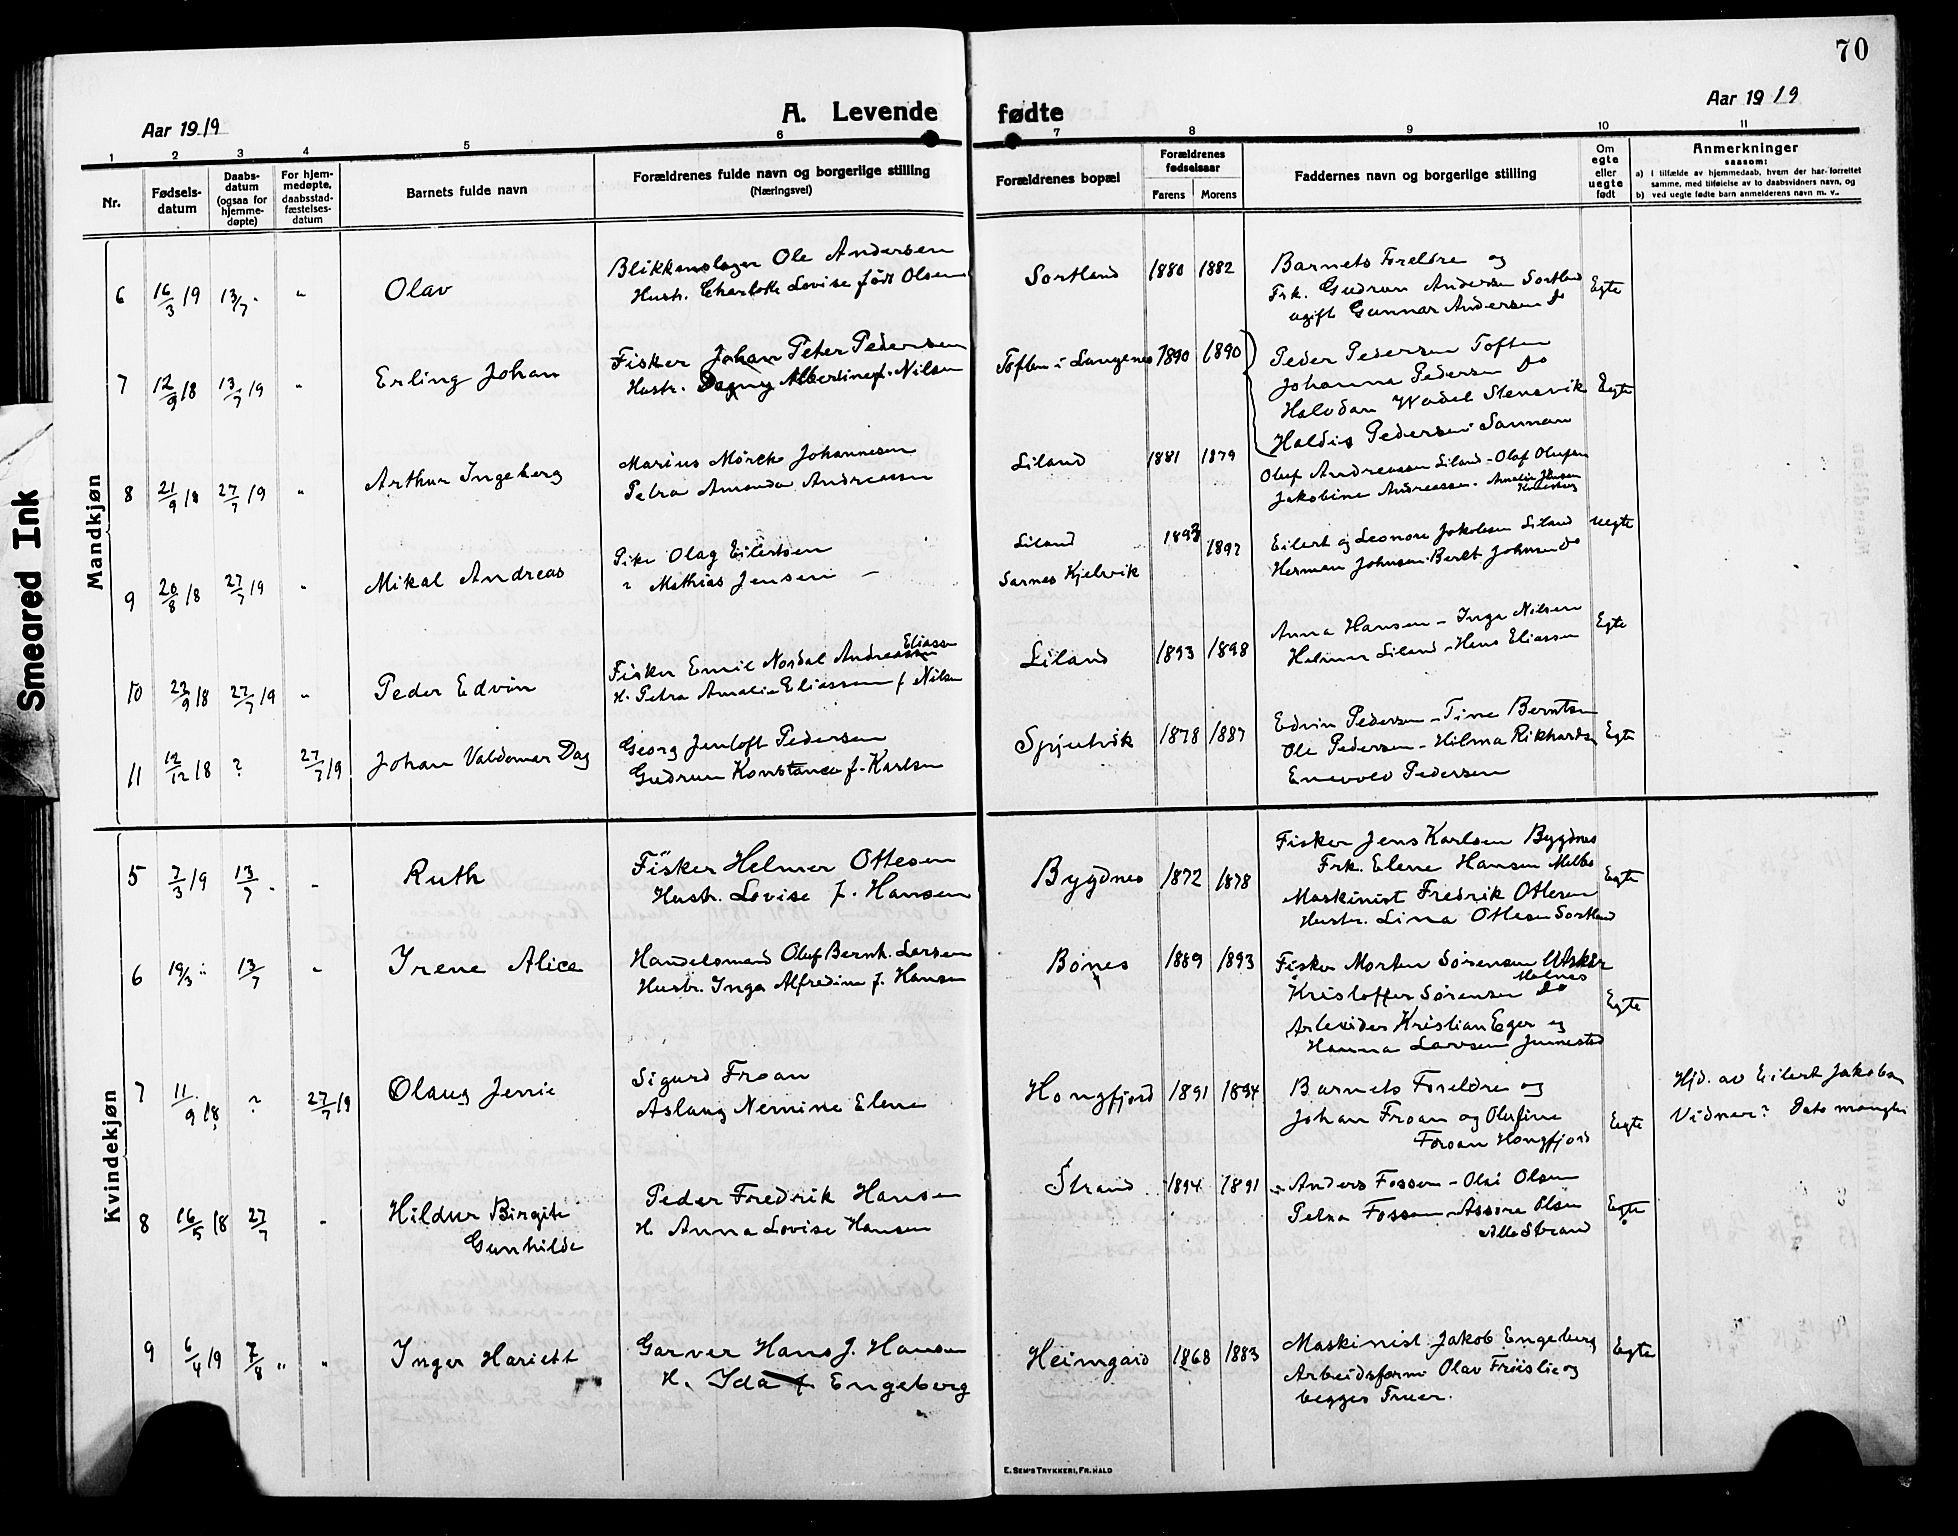 70
Aar 1919
A. Levende
fødte
Aar 1919
1 2 3 4 5 6 7 8 9 10 11
Nr.
Fødsels-
datum
Daabs-
datum
(ogsaa for
hjemme-
døpte)
For hjem-
medøpte,
daabsstad-
fæstelses-
datum
Barnets fulde navn
Forældrenes fulde navn og borgerlige stilling
(Næringsvei)
Forældrenes bopæl
Forældrenes
fødselsaar
Farens Morens
Faddernes navn og borgerlige stilling
Om
egte
eller
uegte
født
Anmerkninger
saasom:
a) I tilfælde av hjemmedaab, hvem der har forrettet
samme, med tilføielse av to daabsvidners navn, og
b) ved uegte fødte barn anmelderens navn m. v.
Smeared Ink
Mandkjøn
6 16/3 19 13/7 " " Olav
Blikkenslager Ole Andersen
Hustr. Charlotte Lovise født Olsen
Sortland 1880 1882
Barnets Foreldre og
Frk. Gudrun Andersen Sortland
ugift Gunnar Andersen Do
Egte
7 12/9 18 13/7 19 " Erling Johan
Fisker Johan Peter Pedersen
Hustr. Dagny Albertine f. Nilsen
Toften i Langenes 1890 1890
Peder Pedersen Toften
Johanna Pedersen Do
Halvdan Wadel Stensvik
Haldis Pedersen
Egte
8 21/9 18 27/7 19 " Arthur Ingeberg
Marius Mörch Johannesen
Petra Amanda Andreassen
Liland 1881 1879
Oluf Andreassen Liland - Olaf Olufsen
Jakobine Andreassen - Amalie Jensen
9 20/8 18 27/7 19 " Mikal Andreas
Pike Olag Eilertsen
" Mathias Jensen -
Liland
Sarnes Kjelvik
1893 1892
Eilert og Leonore Jakobsen Liland
Herman Johnsen Berit Johnsen Do
uegte
10 22/9 18 27/7 19 " Peder Edvin
Eliassen
Fisker Emil Nordal Andreassen
H. Petra Amalie Eliassen f Nilsen
Liland 1893 1898
Anna Hansen - Inga Nilsen
Halmar Liland - Hans Eliassen
Egte
11 12/12 18 ? 27/7 19 Johan Valdemar Dag
Georg Jentoft Pedersen
Gudrun Konstance f. Karlsen
1878 1887
Edvin Pedersen - Tine Berntsen
Ole Pedersen - Hilma Rikhardsen
Enevold Pedersen
Egte
Kvindekjøn
5 7/3 19 13/7 " " Ruth
Fisker Helmer Ottesen
Hustr. Lovise f. Hansen
Bygdnes 1872 1878
Fisker Jens Karlsen Bygdnes
Frk. Elene Hansen Melbo
Maskinist Fredrik Ottesen
Hustr. Lina Ottesen Sortland
Egte
6 19/3 " 13/7 " Irene Alice
Handelsmand Oluf Bernh. Larsen
Hustr. Inga Alfredine f. Hansen
Bönes 1889 1893
Fisker Morten Sörensen
Kristoffer Sørensen Do
Arbeider Kristian Eger og
Hanna Larsen Jennestad
Egte
7 11/9 18 ? 27/7 19 Olaug Jenie
Sigurd Froan
Aslaug Nemine Elene
Hongfjord 1891 1894
Barnets Foreldre og
Johan Froan og Olufine
Froan Hongfjord
Egte
Hjd. av Eilert Jakobsen
Vidner? Dato mangler
8 16/5 18 27/7 " Hildur Birgite
Gunhilde
Peder Fredrik Hansen
H. Anna Lovise Hansen
Strand 1894 1891
Anders Fossen - Olai Olsen
Petra Fossen - Assora Olsen
Alle Strand
Egte
9 6/4 19 7/8 " " Inger Hariett
Garver Hans J. Hansen
H. Ida f Engeberg
Heimgard 1868 1883
Maskinist Jakob Engeberg
Arbeidsform Olav Fröislie og
begges Fruer.
Egte
E. SEM'S TRYKKERI, FR.HALD